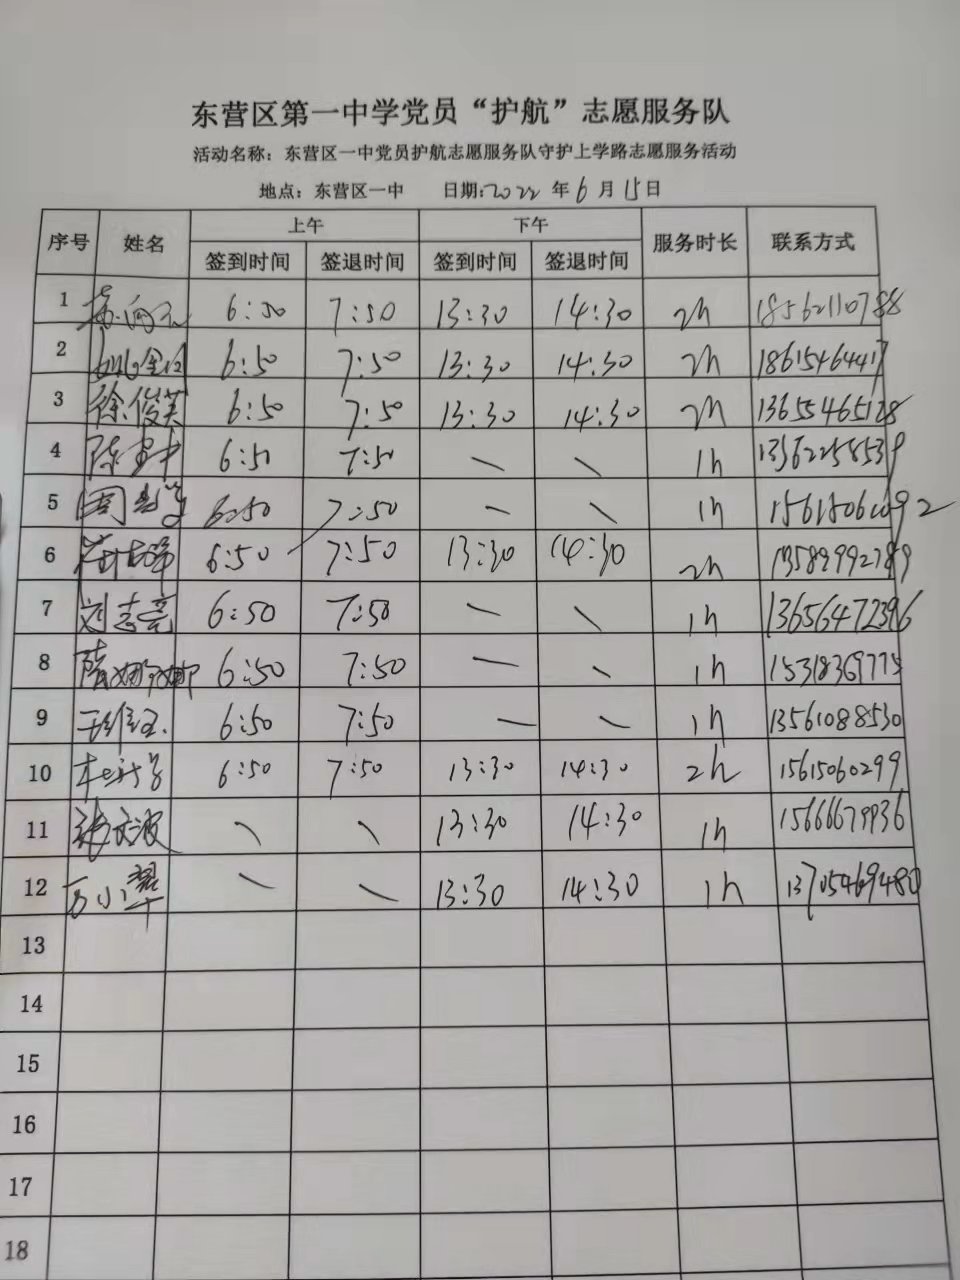 东营区第一中学党员“护航”志愿服务队
活动名称：东营区一中党员护航志愿服务队守护上学路志愿服务活动
地点：东营区一中 日期:2022 年 6 月 15 日
序号 姓名 上午 下午 服务时长 联系方式
签到时间 签退时间 签到时间 签退时间
1 6:50 7:50 13:30 14:30 2h 18562110788
2 6:50 7:50 13:30 14:30 2h 18615464417
3 徐俊芙 6:50 7:50 13:30 14:30 2h 13655465128
4 6:50 7:50 — — 1h
5 6:50 7:50 — — 1h
6 6:50 7:50 13:30 14:30 2h 13589992789
7 刘志亮 6:50 7:50 — — 1h 13656472396
8 隋娜娜 6:50 7:50 — — 1h 15318369775
9 6:50 7:50 — — 1h 13561088530
10 6:50 7:50 13:30 14:30 2h 15615060299
11 张文波 — — 13:30 14:30 1h 15666679936
12 万小翠 — — 13:30 14:30 1h 13705469480
13
14
15
16
17
18